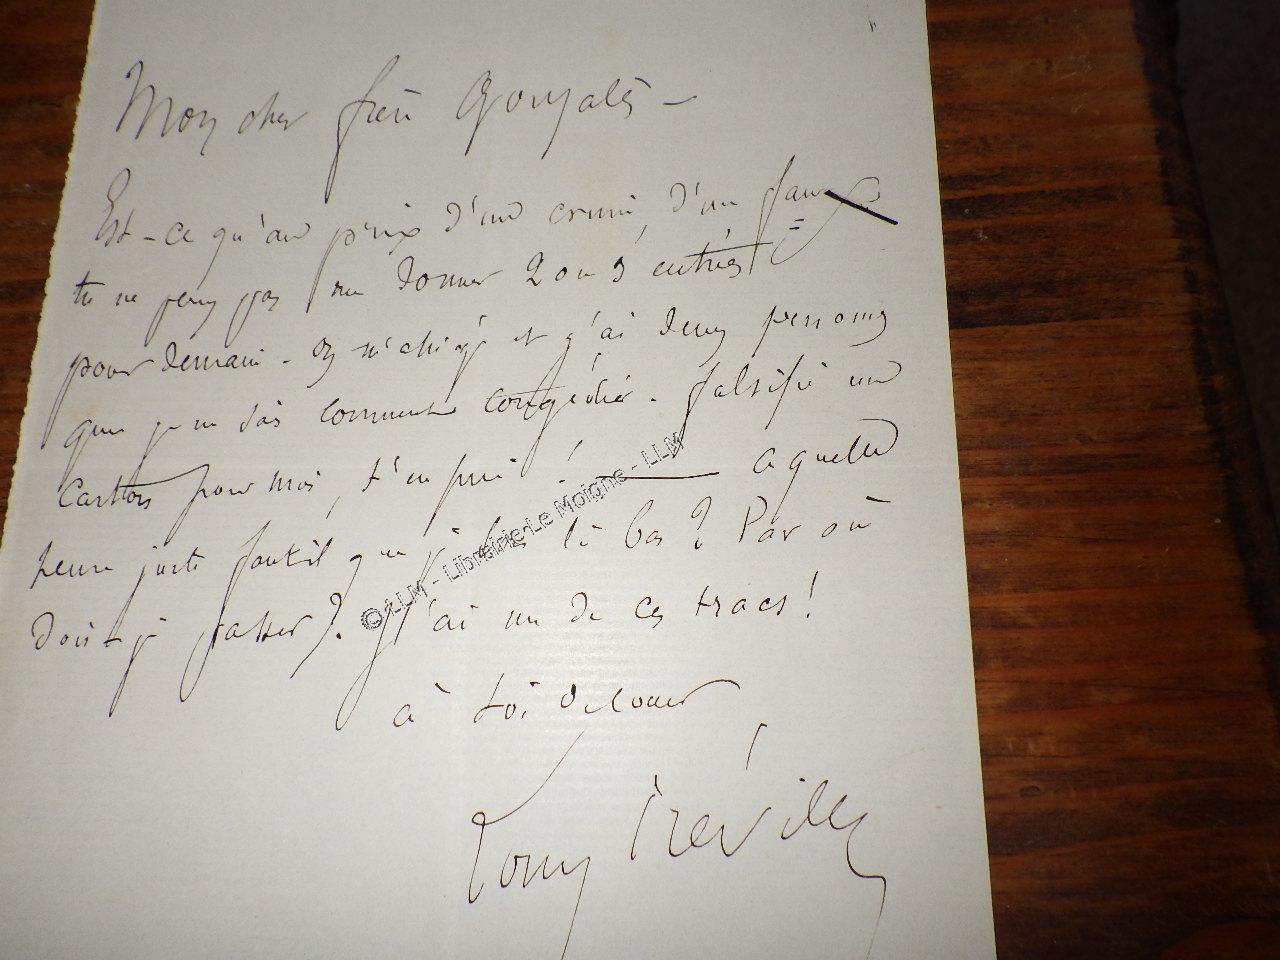 Mon cher frère Gonzalès —
Est-ce qu'au prix d'un crime, d'un faux
tu ne peux pas me donner 2 ou 3 entrées
pour demain - on m'a et j'ai deux personnes
que je ne sais comment congédier. falsifie un
carton pour moi, t'en prie ! — a quelle
heure juste faut-il que j' là bas ? Par où
dois-je passer ? J'ai un de ces tracs !
à toi de coeur
Tony Révillon
© LLM - Librairie Le Moigne - LLM